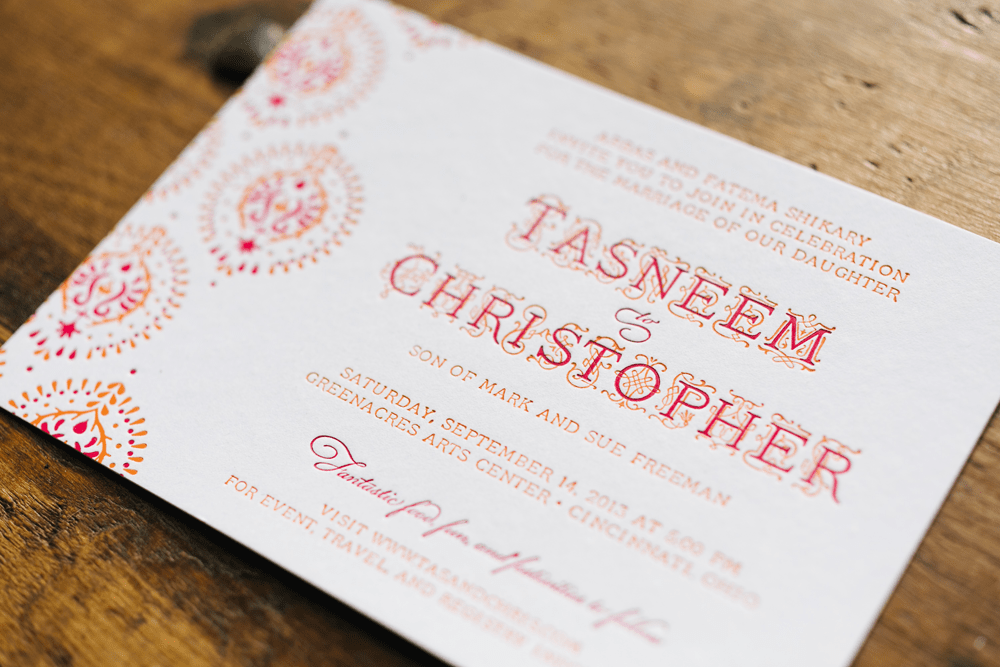 ABBAS AND FATEMA SHIKARY
INVITE YOU TO JOIN IN CELEBRATION
FOR THE MARRIAGE OF OUR DAUGHTER
TASNEEM
to
CHRISTOPHER
SON OF MARK AND SUE FREEMAN
SATURDAY, SEPTEMBER 14, 2013 AT 5:00 PM
GREENACRES ARTS CENTER • CINCINNATI, OHIO
Fantastic food, fun, and festivities to follow
VISIT WWW.TASANDCHRIS.COM
FOR EVENT, TRAVEL, AND REGISTRY